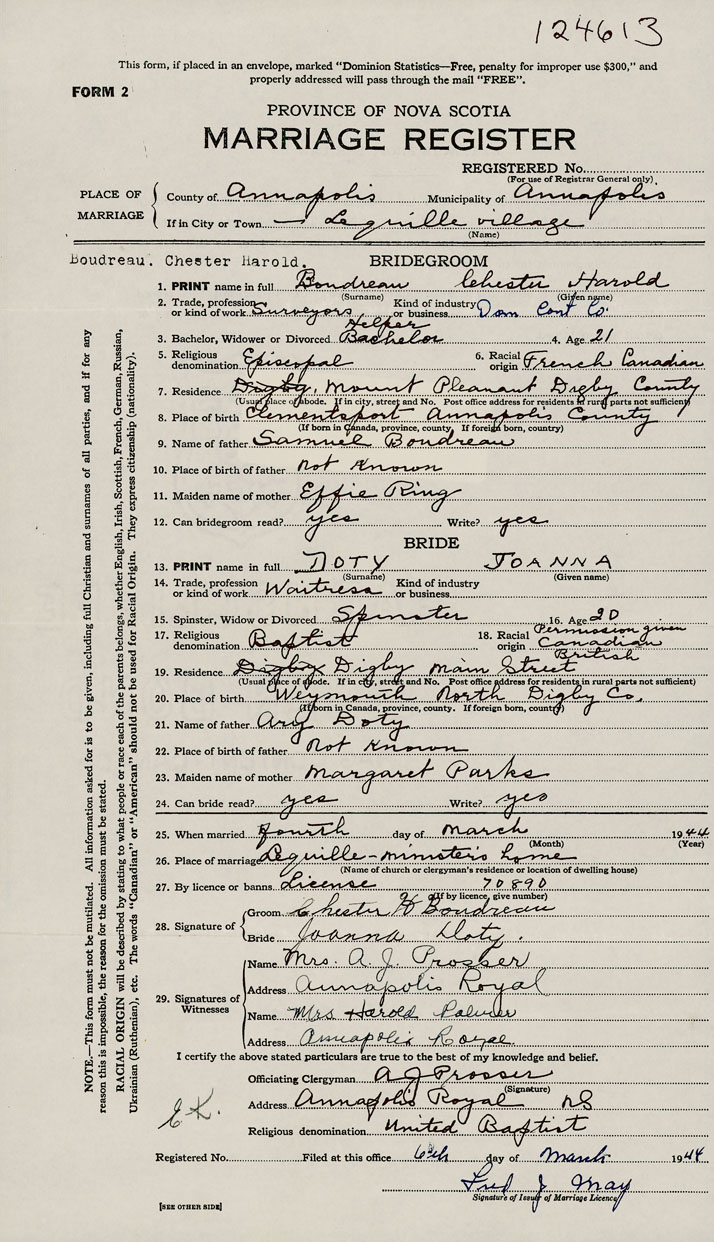 124613
This form, if placed in an envelope, marked "Dominion Statistics—Free, penalty for improper use $300," and
properly addressed will pass through the mail "FREE".
FORM 2
PROVINCE OF NOVA SCOTIA
MARRIAGE REGISTER
REGISTERED No.
(For use of Registrar General only)
PLACE OF MARRIAGE
County of Annapolis Municipality of Annapolis
If in City or Town — Lequille village
(Name)
Boudreau. Chester Harold. BRIDEGROOM
1. PRINT name in full Boudreau Chester Harold
(Surname) (Given name)
2. Trade, profession or kind of work Surveyors Helper Kind of industry or business Dom Cont Co.
3. Bachelor, Widower or Divorced Bachelor 4. Age 21
5. Religious denomination Episcopal 6. Racial origin French Canadian
7. Residence Digby, Mount Pleasant Digby County
(Usual place of abode. If in city, street and No. Post office address for residents in rural parts not sufficient)
8. Place of birth Clementsport Annapolis County
(If born in Canada, province, county. If foreign born, country)
9. Name of father Samuel Boudreau
10. Place of birth of father not known
11. Maiden name of mother Effie Ring
12. Can bridegroom read? yes Write? yes
BRIDE
13. PRINT name in full DOTY JOANNA
(Surname) (Given name)
14. Trade, profession or kind of work Waitress Kind of industry or business
15. Spinster, Widow or Divorced Spinster 16. Age 20
17. Religious denomination Baptist 18. Racial origin Permission given Canadian British
19. Residence Digby Digby main Street
(Usual place of abode. If in city, street and No. Post office address for residents in rural parts not sufficient)
20. Place of birth Weymouth North Digby Co.
(If born in Canada, province, county. If foreign born, country)
21. Name of father Ary Doty
22. Place of birth of father not known
23. Maiden name of mother Margaret Parks
24. Can bride read? yes Write? yes
25. When married fourth day of march 1944
(Month) (Year)
26. Place of marriage Lequille - minister's home
(Name of church or clergyman's residence or location of dwelling house)
27. By licence or banns License 70890
(If by licence, give number)
28. Signature of
Groom Chester H Boudreau
Bride Joanna Doty.
29. Signatures of Witnesses
Name Mrs. A. J. Prosser
Address Annapolis Royal
Name Mrs Harold Palmer
Address Annapolis Royal
I certify the above stated particulars are true to the best of my knowledge and belief.
Officiating Clergyman A J Prosser
(Signature)
Address Annapolis Royal NS
E.K.
Religious denomination United Baptist
Registered No. Filed at this office 6th day of March 1944
Fred J May
Signature of Issuer of Marriage Licence
[SEE OTHER SIDE]
NOTE.—This form must not be mutilated. All information asked for is to be given, including full Christian and surnames of all parties, and if for any
reason this is impossible, the reason for the omission must be stated.
RACIAL ORIGIN will be described by stating to what people or race each of the parents belongs, whether English, Irish, Scottish, French, German, Russian,
Ukrainian (Ruthenian), etc. The words "Canadian" or "American" should not be used for Racial Origin. They express citizenship (nationality).